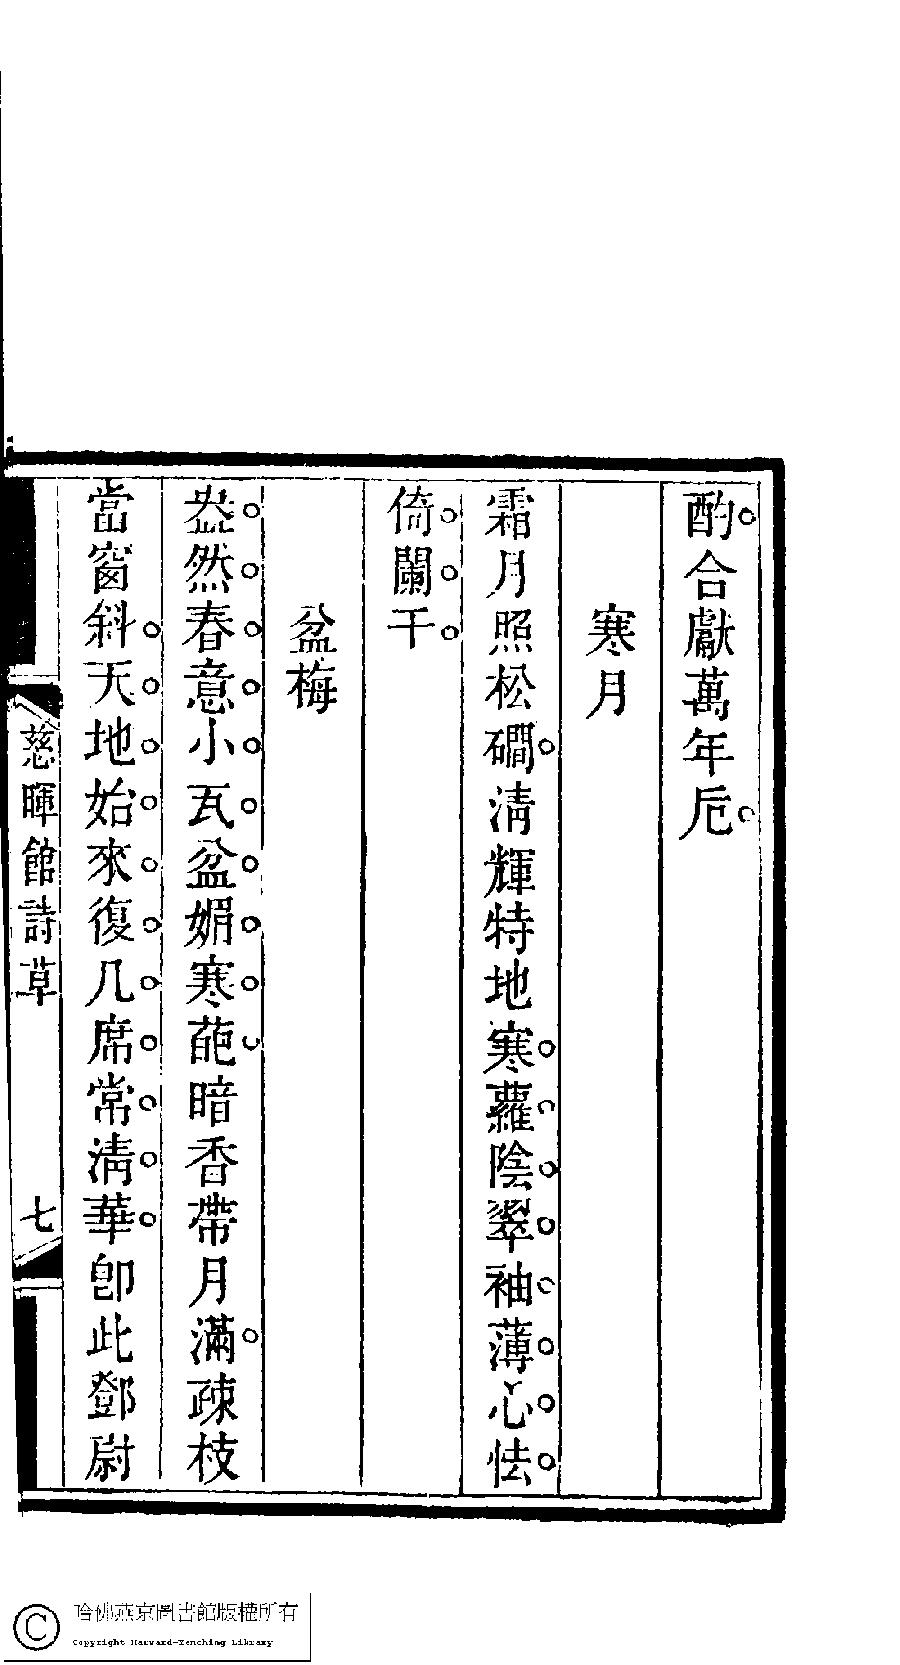 酌合獻萬年卮
寒月
霜月照松磵清輝特地寒蘿陰翠袖薄心怯
倚闌干
盆梅
盎然春意小瓦盆媚寒葩暗香帶月滿疎枝
當窗斜天地始來復几席常清華卽此鄧尉
慈暉館詩草
七
哈佛燕京圖書館版權所有
Copyright Harvard-Yenching Library